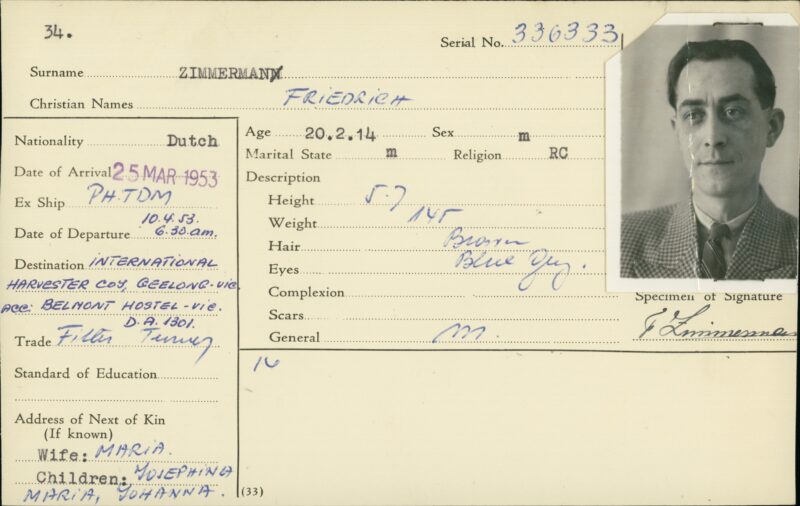 34.
Serial No. 336333
Surname ZIMMERMAN
Christian Names FRIEDRICH
Nationality Dutch
Date of Arrival 25 MAR 1953
Ex Ship PH.TDM
10.4.53.
Date of Departure 6.30.am.
Destination INTERNATIONAL
HARVESTER COY, GEELONG-VIC.
ACC: BELMONT HOSTEL-VIC.
D.A. 1301.
Trade Fitter Turner
Standard of Education
Address of Next of Kin
(If known)
Wife: MARIA.
Children: JOSEPHINA
MARIA, JOHANNA.
Age 20.2.14 Sex m
Marital State m Religion RC
Description
Height 5.7
Weight 145
Hair Brown
Eyes Blue Grey.
Complexion
Scars
General M.
(33)
Specimen of Signature
F Zimmerman